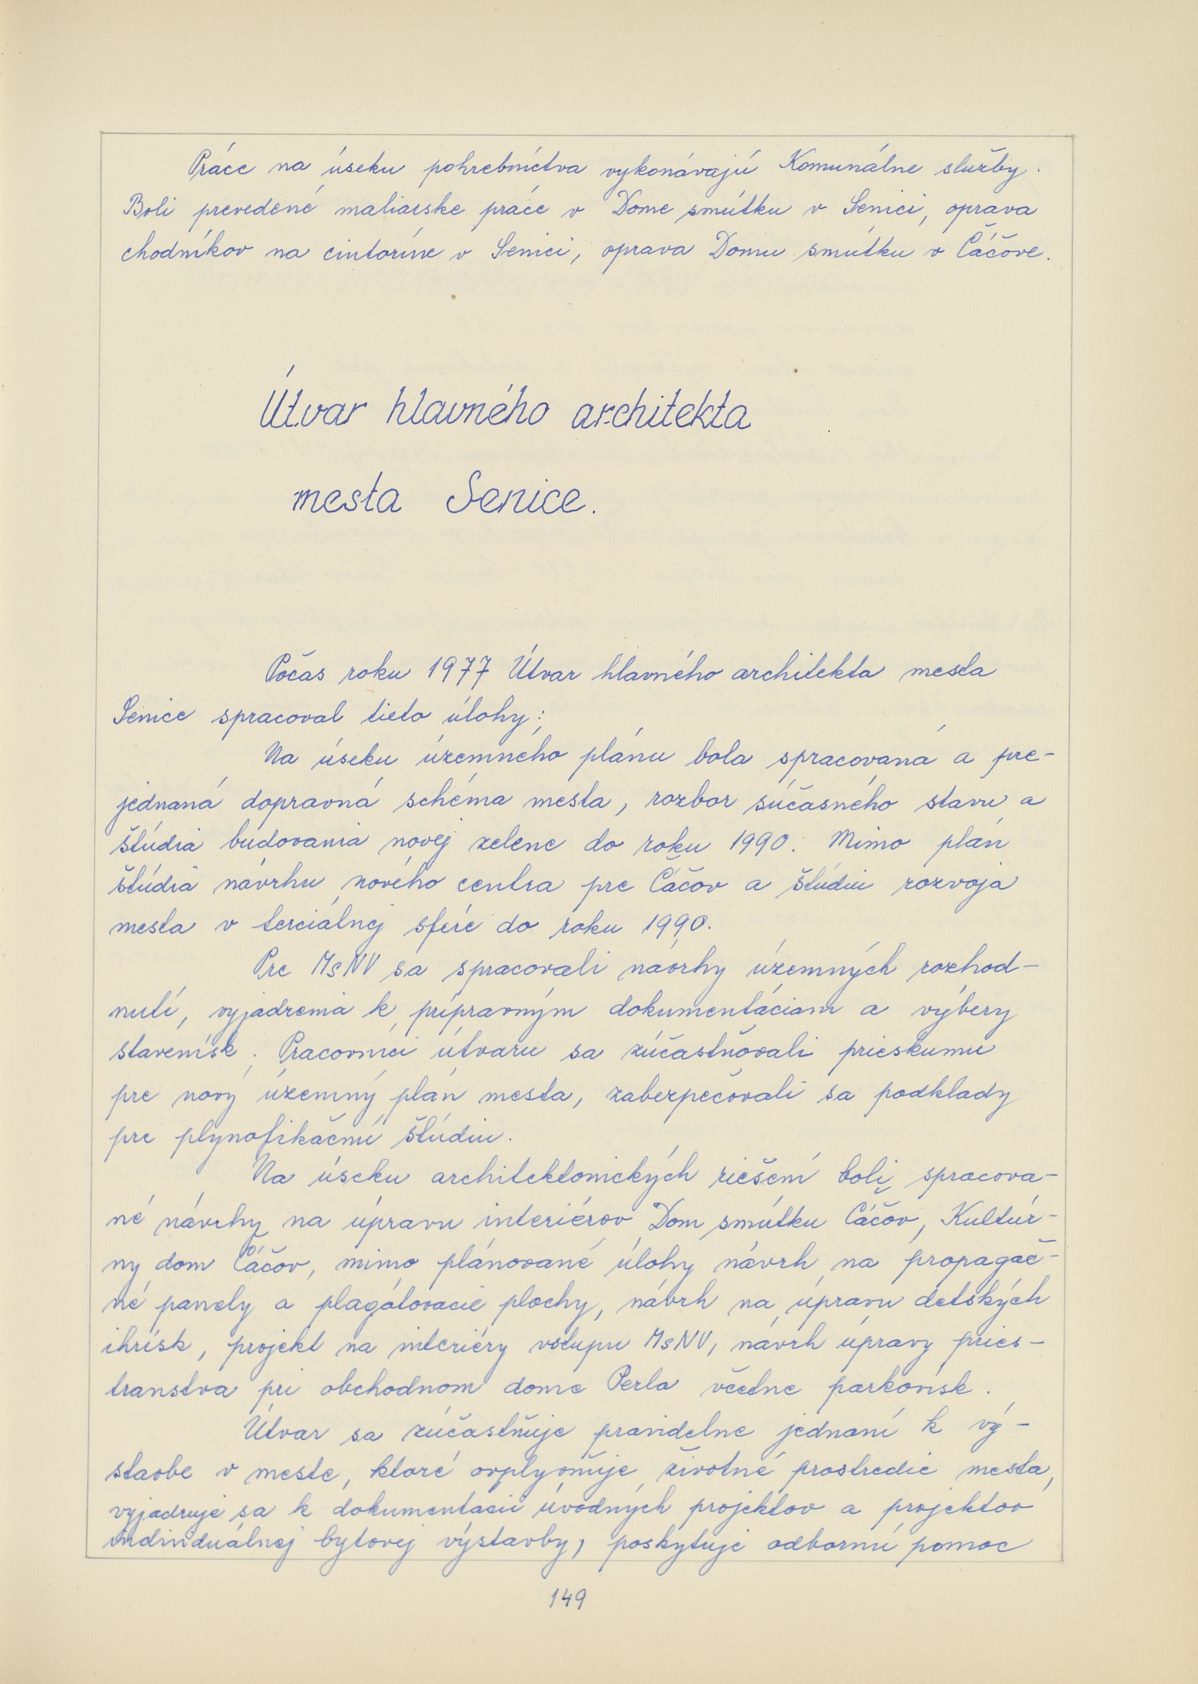 Práce na úseku pohrebníctva vykonávajú Komunálne služby.
Boli prevedené maliarske práce v Dome smútku v Senici, oprava
chodníkov na cintoríne v Senici, oprava Domu smútku v Čáčove.
Útvar hlavného architekta
mesta Senice.
Počas roku 1977 Útvar hlavného architekta mesta
Senice spracoval tieto úlohy:
Na úseku územného plánu bola spracovaná a pre-
jednaná dopravná schéma mesta, rozbor súčasného stavu a
štúdia budovania novej zelene do roku 1990. Mimo plán
štúdia návrhu nového centra pre Čáčov a štúdiu rozvoja
mesta v terciálnej sfére do roku 1990.
Pre MsNV sa spracovali návrhy územných rozhod-
nutí, vyjadrenia k prípravným dokumentáciam a výbery
stavenísk. Pracovníci útvaru sa zúčastňovali prieskumu
pre nový územný plán mesta, zabezpečovali sa podklady
pre plynofikačnú štúdiu.
Na úseku architektonických riešení boli spracova-
né návrhy na úpravu interiérov Dom smútku Čáčov, Kultúr-
ny dom Čáčov, mimo plánované úlohy návrh na propagač-
né panely a plagátovacie plochy, návrh na úpravu detských
ihrísk, projekt na interiéry vstupu MsNV, návrh úpravy pries-
transtva pri obchodnom dome Perla včetne parkovísk.
Útvar sa zúčastňuje pravidelne jednaní k vý-
stavbe v meste, ktoré ovplyvňuje životné prostredie mesta,
vyjadruje sa k dokumentácii úvodných projektov a projektov
individuálnej bytovej výstavby, poskytuje odbornú pomoc
149